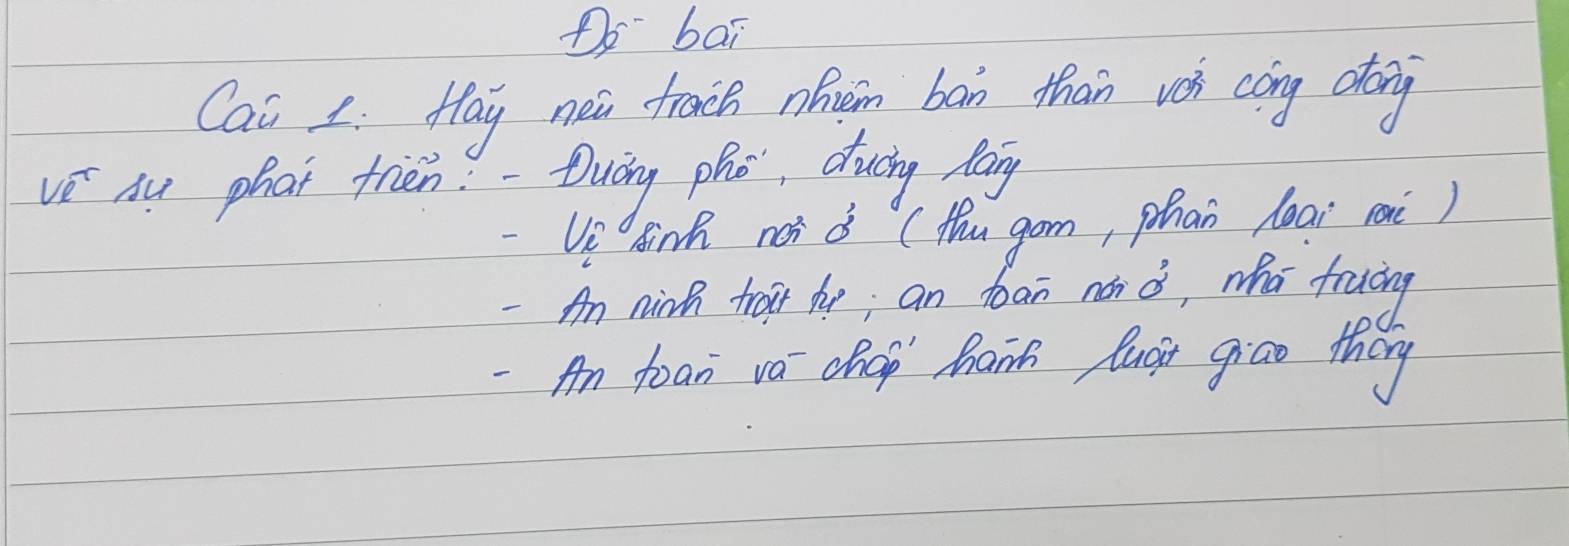 Đề bài
Câu 1. Hãy nêu trách nhiệm bản thân với cộng đồng
về sự phát triển: - Đường phố, đường làng
- Vệ sinh nơi ở (thu gom, phân loại rác)
- An ninh trật tự, an toàn nơi ở, nhà trường
- An toàn và chấp hành luật giao thông